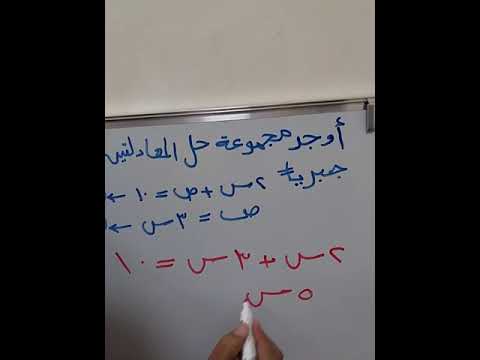 أوجد مجموعة حل المعادلتين
جبرياً ٢س + ص = ١٠ ←
ص = ٣س ←
٢س + ٣س = ١٠
٥س